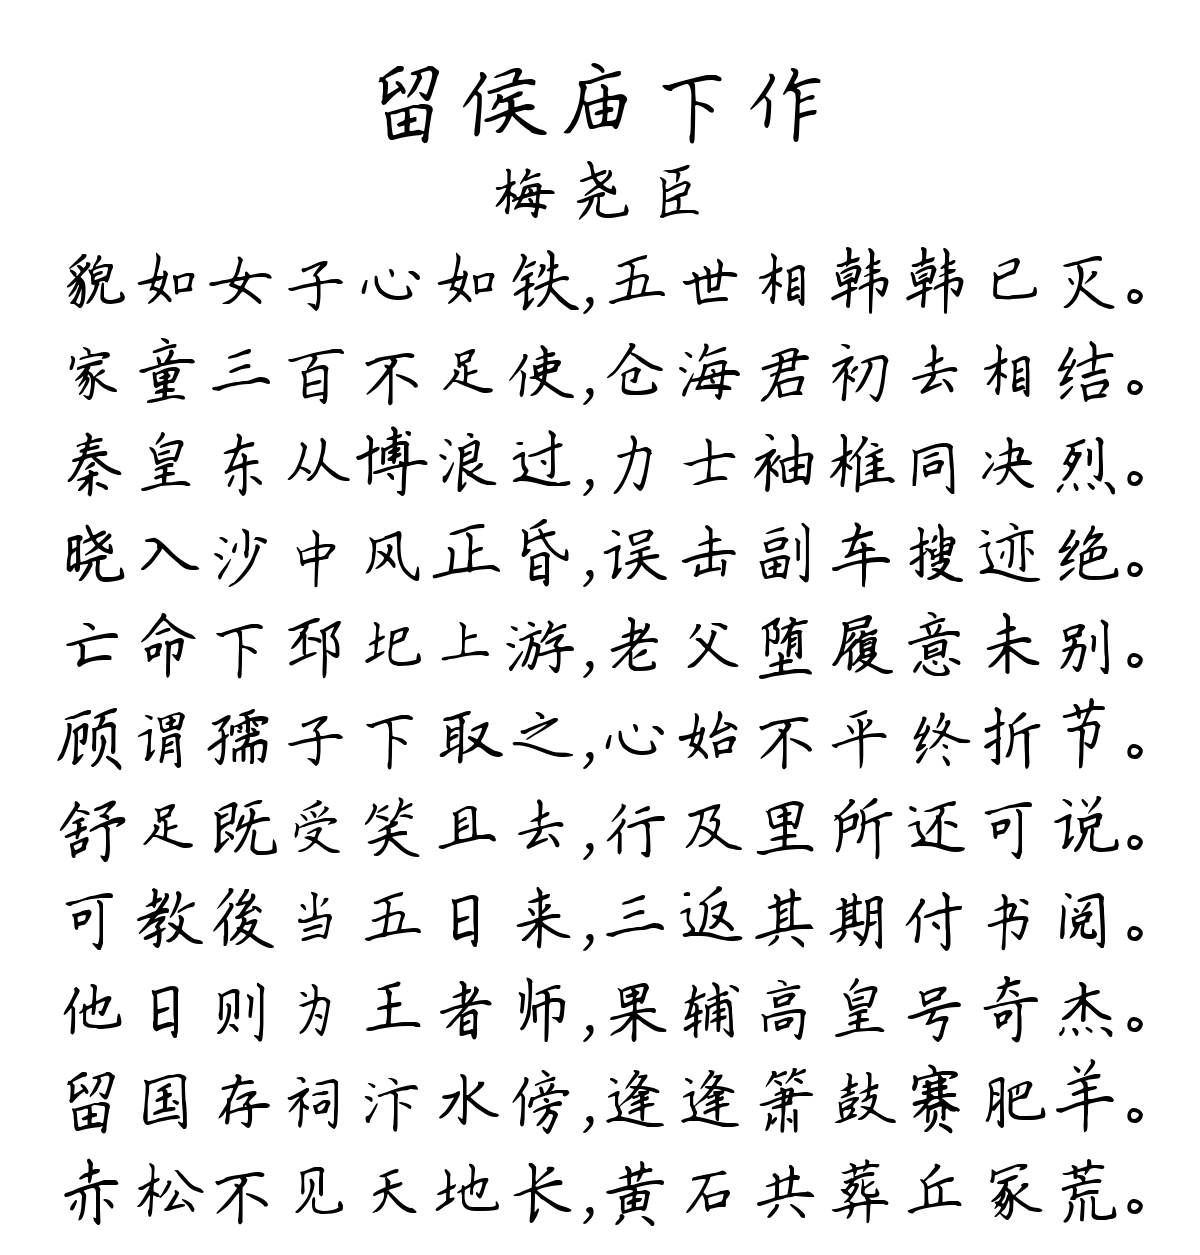 留侯庙下作
梅尧臣
貌如女子心如铁,五世相韩韩已灭。
家童三百不足使,仓海君初去相结。
秦皇东从博浪过,力士袖椎同决烈。
晓入沙中风正昏,误击副车搜迹绝。
亡命下邳圯上游,老父堕履意未别。
顾谓孺子下取之,心始不平终折节。
舒足既受笑且去,行及里所还可说。
可教後当五日来,三返其期付书阅。
他日则为王者师,果辅高皇号奇杰。
留国存祠汴水傍,逢逢箫鼓赛肥羊。
赤松不见天地长,黄石共葬丘冢荒。